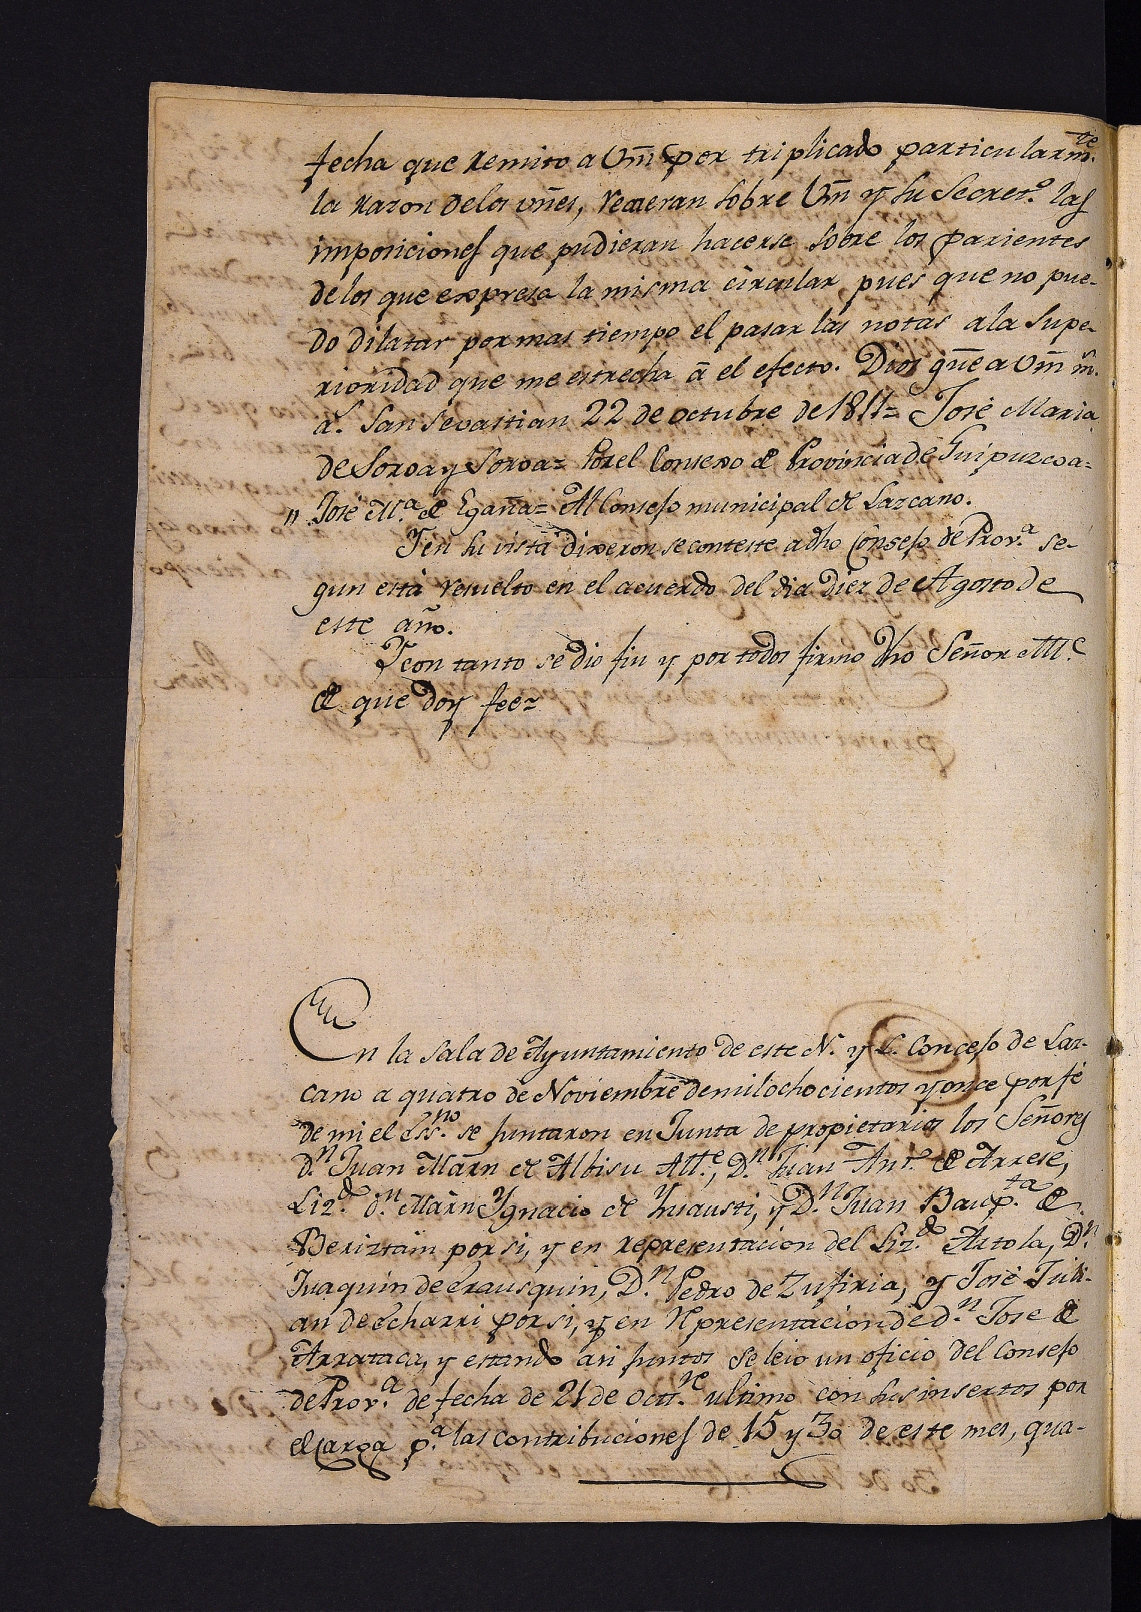 fecha que Remito a Vm̃s por triplicado particularm.te
la Razon delos vñes, recaeran sobre Vm y su Secret.o las
imposiciones que pudieran hacerse sobre los parientes
delos que expresa la misma circular, pues que no pue-
do dilatar por mas tiempo el pasar las notas ala Supe-
rioridad que me estrecha á el efecto. Dios gũe a Vm m̃.
a.s San Sevastian 22 de octubre de 1811= José Maria
de Soroa y Soroa= Por el Consexo de Provincia de Guipuzcoa=
" José M.a de Egaña= Al Consejo municipal de Lazcano.
Y en su vista dixeron se conteste a dho Consejo de Prov.a se-
gun está resuelto en el acuerdo del dia diez de Agosto de
este año.
Y con tanto se dio fin y por todos firmo dho Señor M.e
de que doy fee=
En la Sala de Ayuntamiento de este N. y L. Concejo de Laz-
cano a quatro de Noviembre de mil ochocientos y once por fé
de mi el Ess.no se juntaron en Junta de propietarios los Señores
d.n Juan Marn de Albisu Alt.e, D.n Juan Ant.o de Arrese,
Liz.do d.n Marn Ygnacio de Ynsausti, y D.n Juan Baup.ta de
Beriztain por si, y en representacion del Liz.do Artola, D.n
Juaquin de Erausquin, D.n Pedro de Zufiria, y José Juli-
an de Echarri por si, y en Representacion de d.n Jose de
Arrataca, y estando asi juntos se leio un oficio del Consejo
de Prov.a de fecha de 21 de Oct.re ultimo con sus insertos por
el carga p.a las contribuciones de 15 y 30 de este mes, qua-